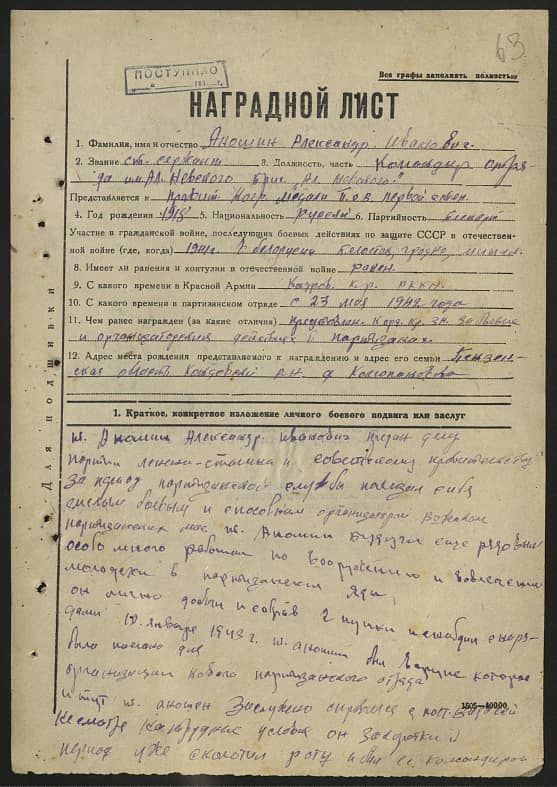 63
Все графы заполнять полностью
ПОСТУПИЛО
НАГРАДНОЙ ЛИСТ
1. Фамилия, имя и отчество Аношин Александр Иванович.
2. Звание ст. сержант 3. Должность, часть Командир отря-
да им. Ал. Невского бриг. Ал. Невского"
Представляется к медали П.О.В. первой степ.
4. Год рождения 1918 5. Национальность русский 6. Партийность
Участие в гражданской войне, последующих боевых действиях по защите СССР и отечествен-
ной войне (где, когда) 1941 г. Белоруссия Белосток, Гродно,
8. Имеет ли ранения и контузии в отечественной войне ранен.
9. С какого времени в Красной Армии Кадров. РККА
10. С какого времени в партизанском отряде с 23 мая 1942 года
11. Чем ранее награжден (за какие отличия) представлен к орд. кр. зн. за
и организаторские действия в партизанах.
12. Адрес места рождения представляемого к награждению и адрес его семьи Пензен-
ская область р-н
Для подшивки
1. Краткое, конкретное изложение личного боевого подвига или заслуг
т. Аношин Александр Иванович предан делу
партии Ленина-Сталина и советскому правительству
За период партизанской службы показал себя
смелым боевым и способным организатором вожаком
партизанских масс т. Аношин будучи еще рядовым
особо много работал по вооружению и вовлечению
молодежи в партизанские ряды
он лично добыл и собрал 2 пушки
дами 10 января 1943 г. т. Аношин был в группе которая
была послана для
организации нового партизанского отряда
и тут т. Аношин заслужено справился с пост. задачей
Несмотря на трудные условия он за короткий
период уже сколотил роту и был ее командиром
1505—40000